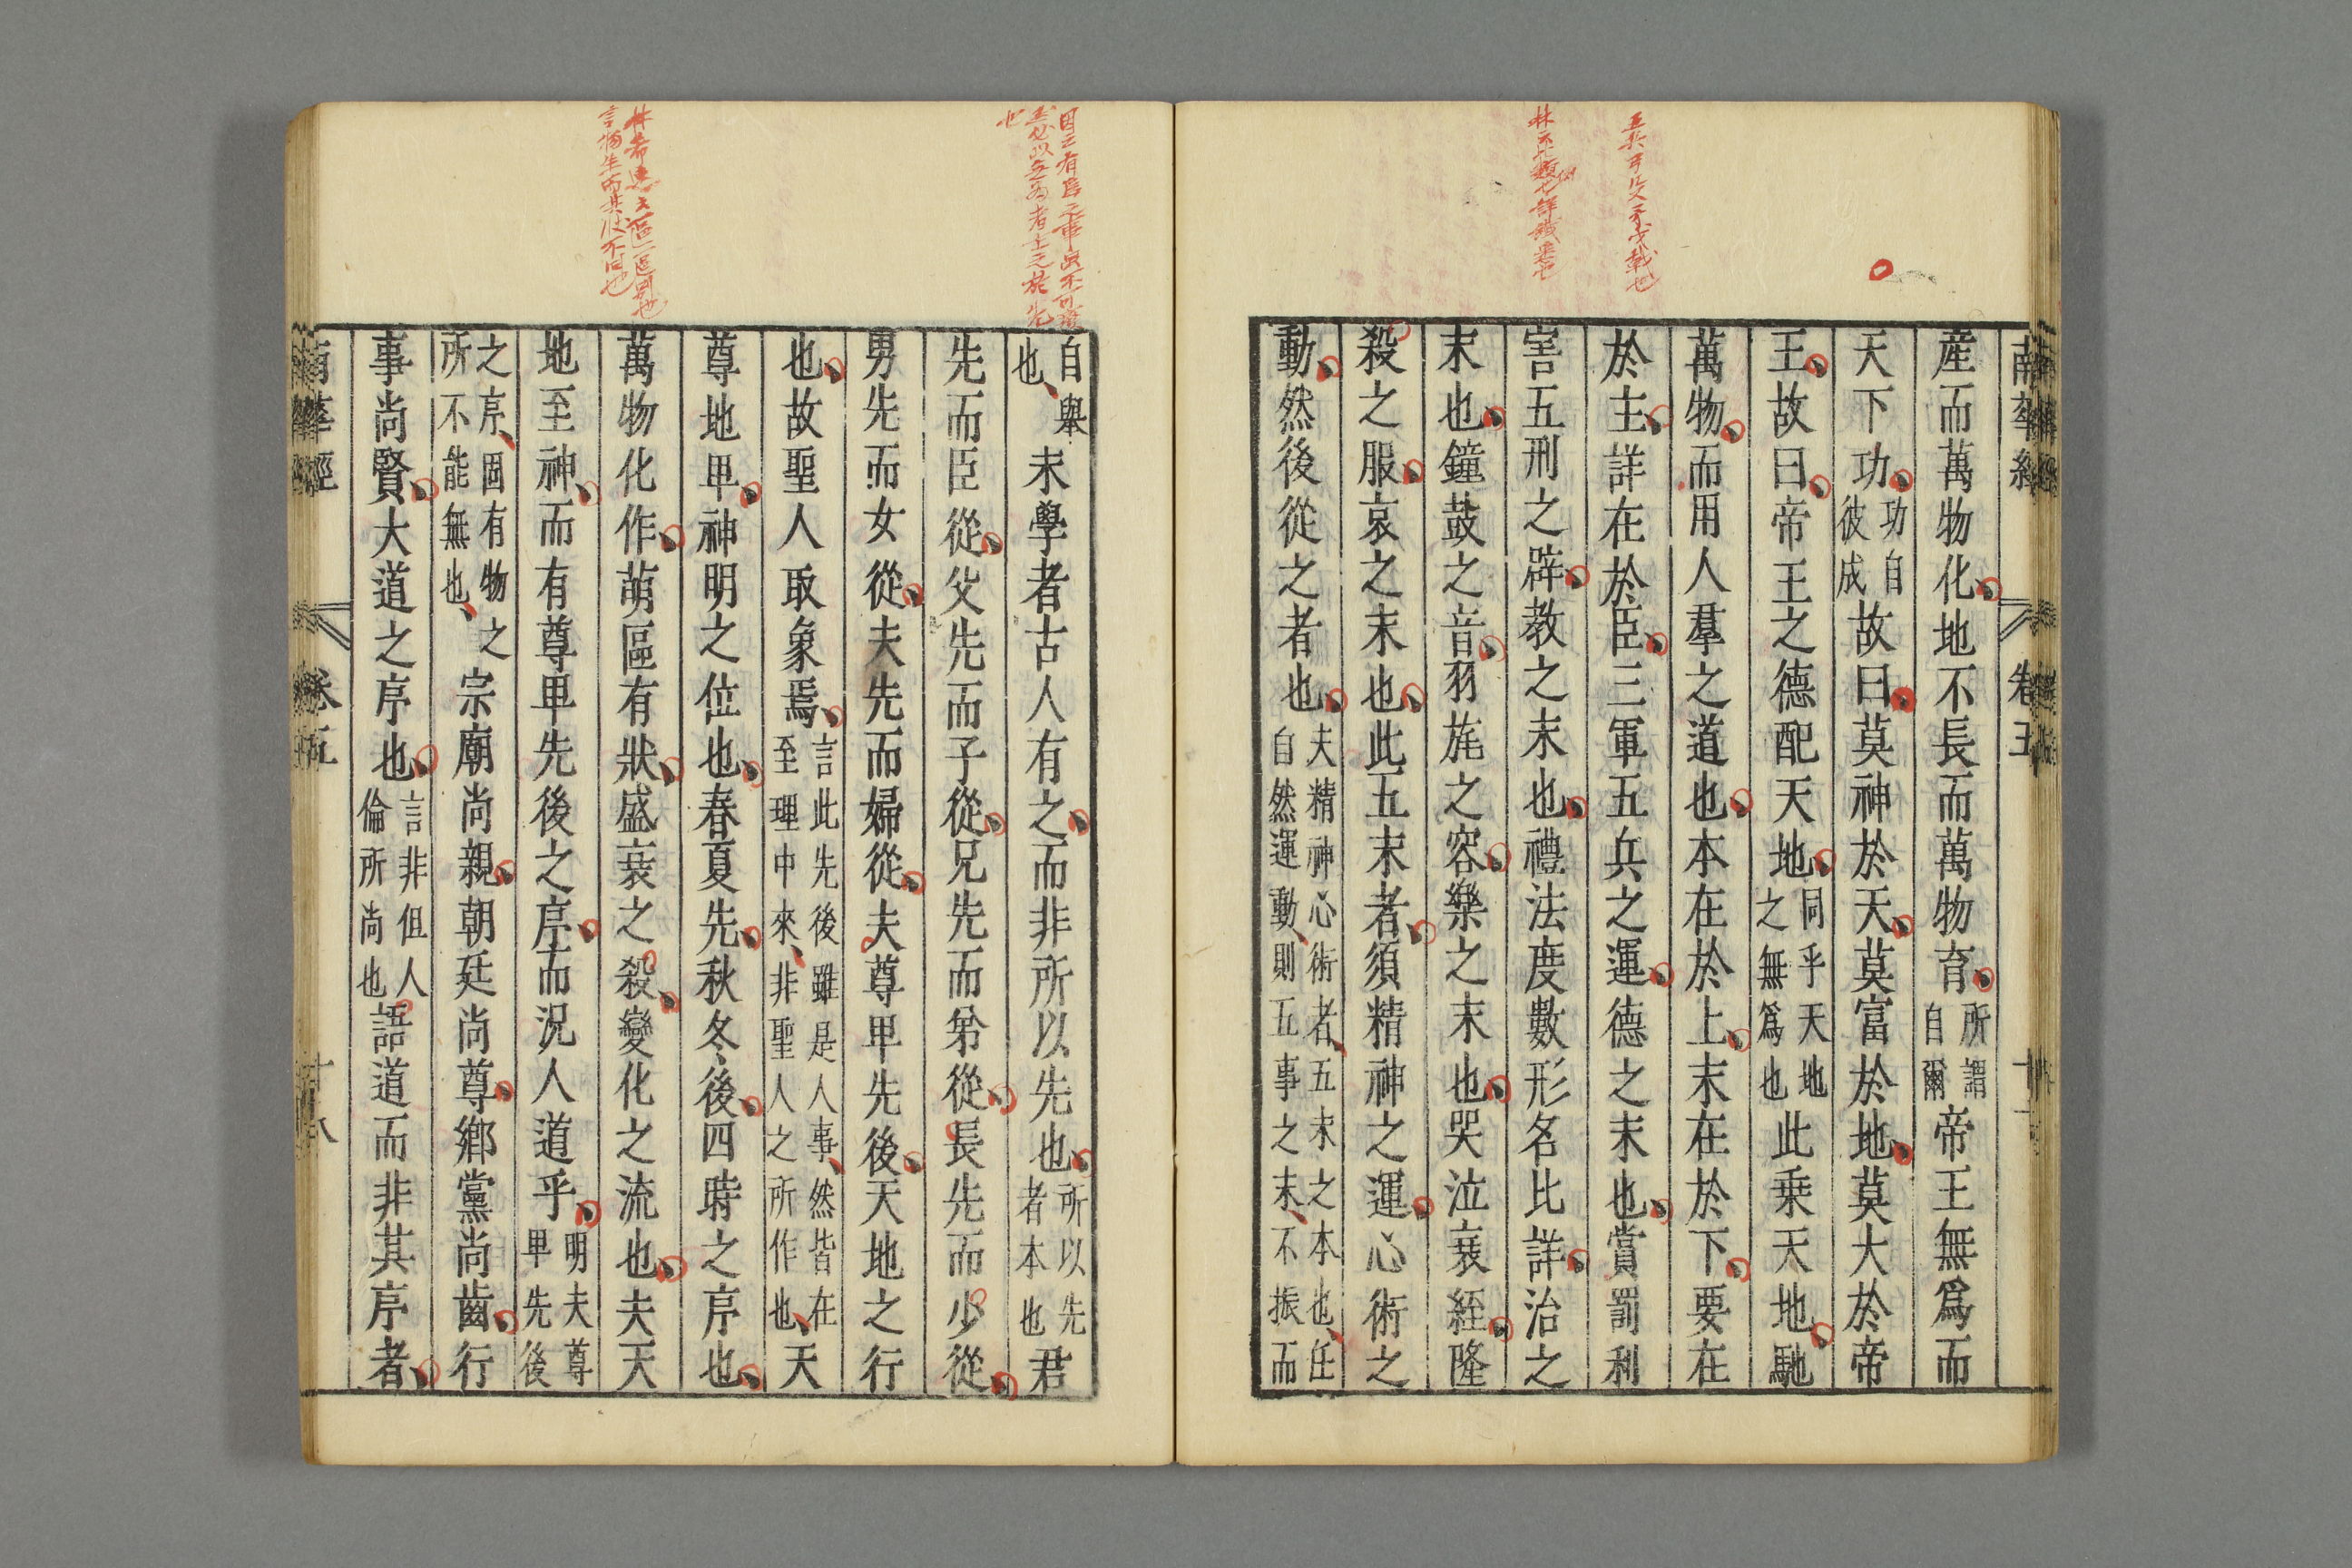 南華經 卷五
產而萬物化地不長而萬物育所謂自爾帝王無爲而
天下功功自彼成故曰莫神於天莫富於地莫大於帝
王故曰帝王之德配天地同乎天地之無爲也此乗天地馳
萬物而用人羣之道也本在於上末在於下要在
於主詳在於臣三軍五兵之運德之末也賞罰利
害五刑之辟教之末也禮法度數形名比詳治之
末也鐘鼓之音羽旄之容樂之末也哭泣衰絰隆
殺之服哀之末也此五末者須精神之運心術之
動然後從之者也夫精神心術者五末之本也任自然運動則五事之末不振而
五兵弓殳矛戈戟也
自舉也末學者古人有之而非所以先也所以先者本也君
先而臣從父先而子從兄先而弟從長先而少從
男先而女從夫先而婦從夫尊卑先後天地之行
也故聖人取象焉言此先後雖是人事然皆在至理中來非聖人之所作也天
尊地卑神明之位也春夏先秋冬後四時之序也
萬物化作萌區有狀盛衰之殺變化之流也夫天
地至神而有尊卑先後之序而況人道乎明夫尊卑先後
之序固有物之所不能無也宗廟尚親朝廷尚尊鄉黨尚齒行
事尚賢大道之序也言非但人倫所尚也語道而非其序者
南華經 卷五 十八